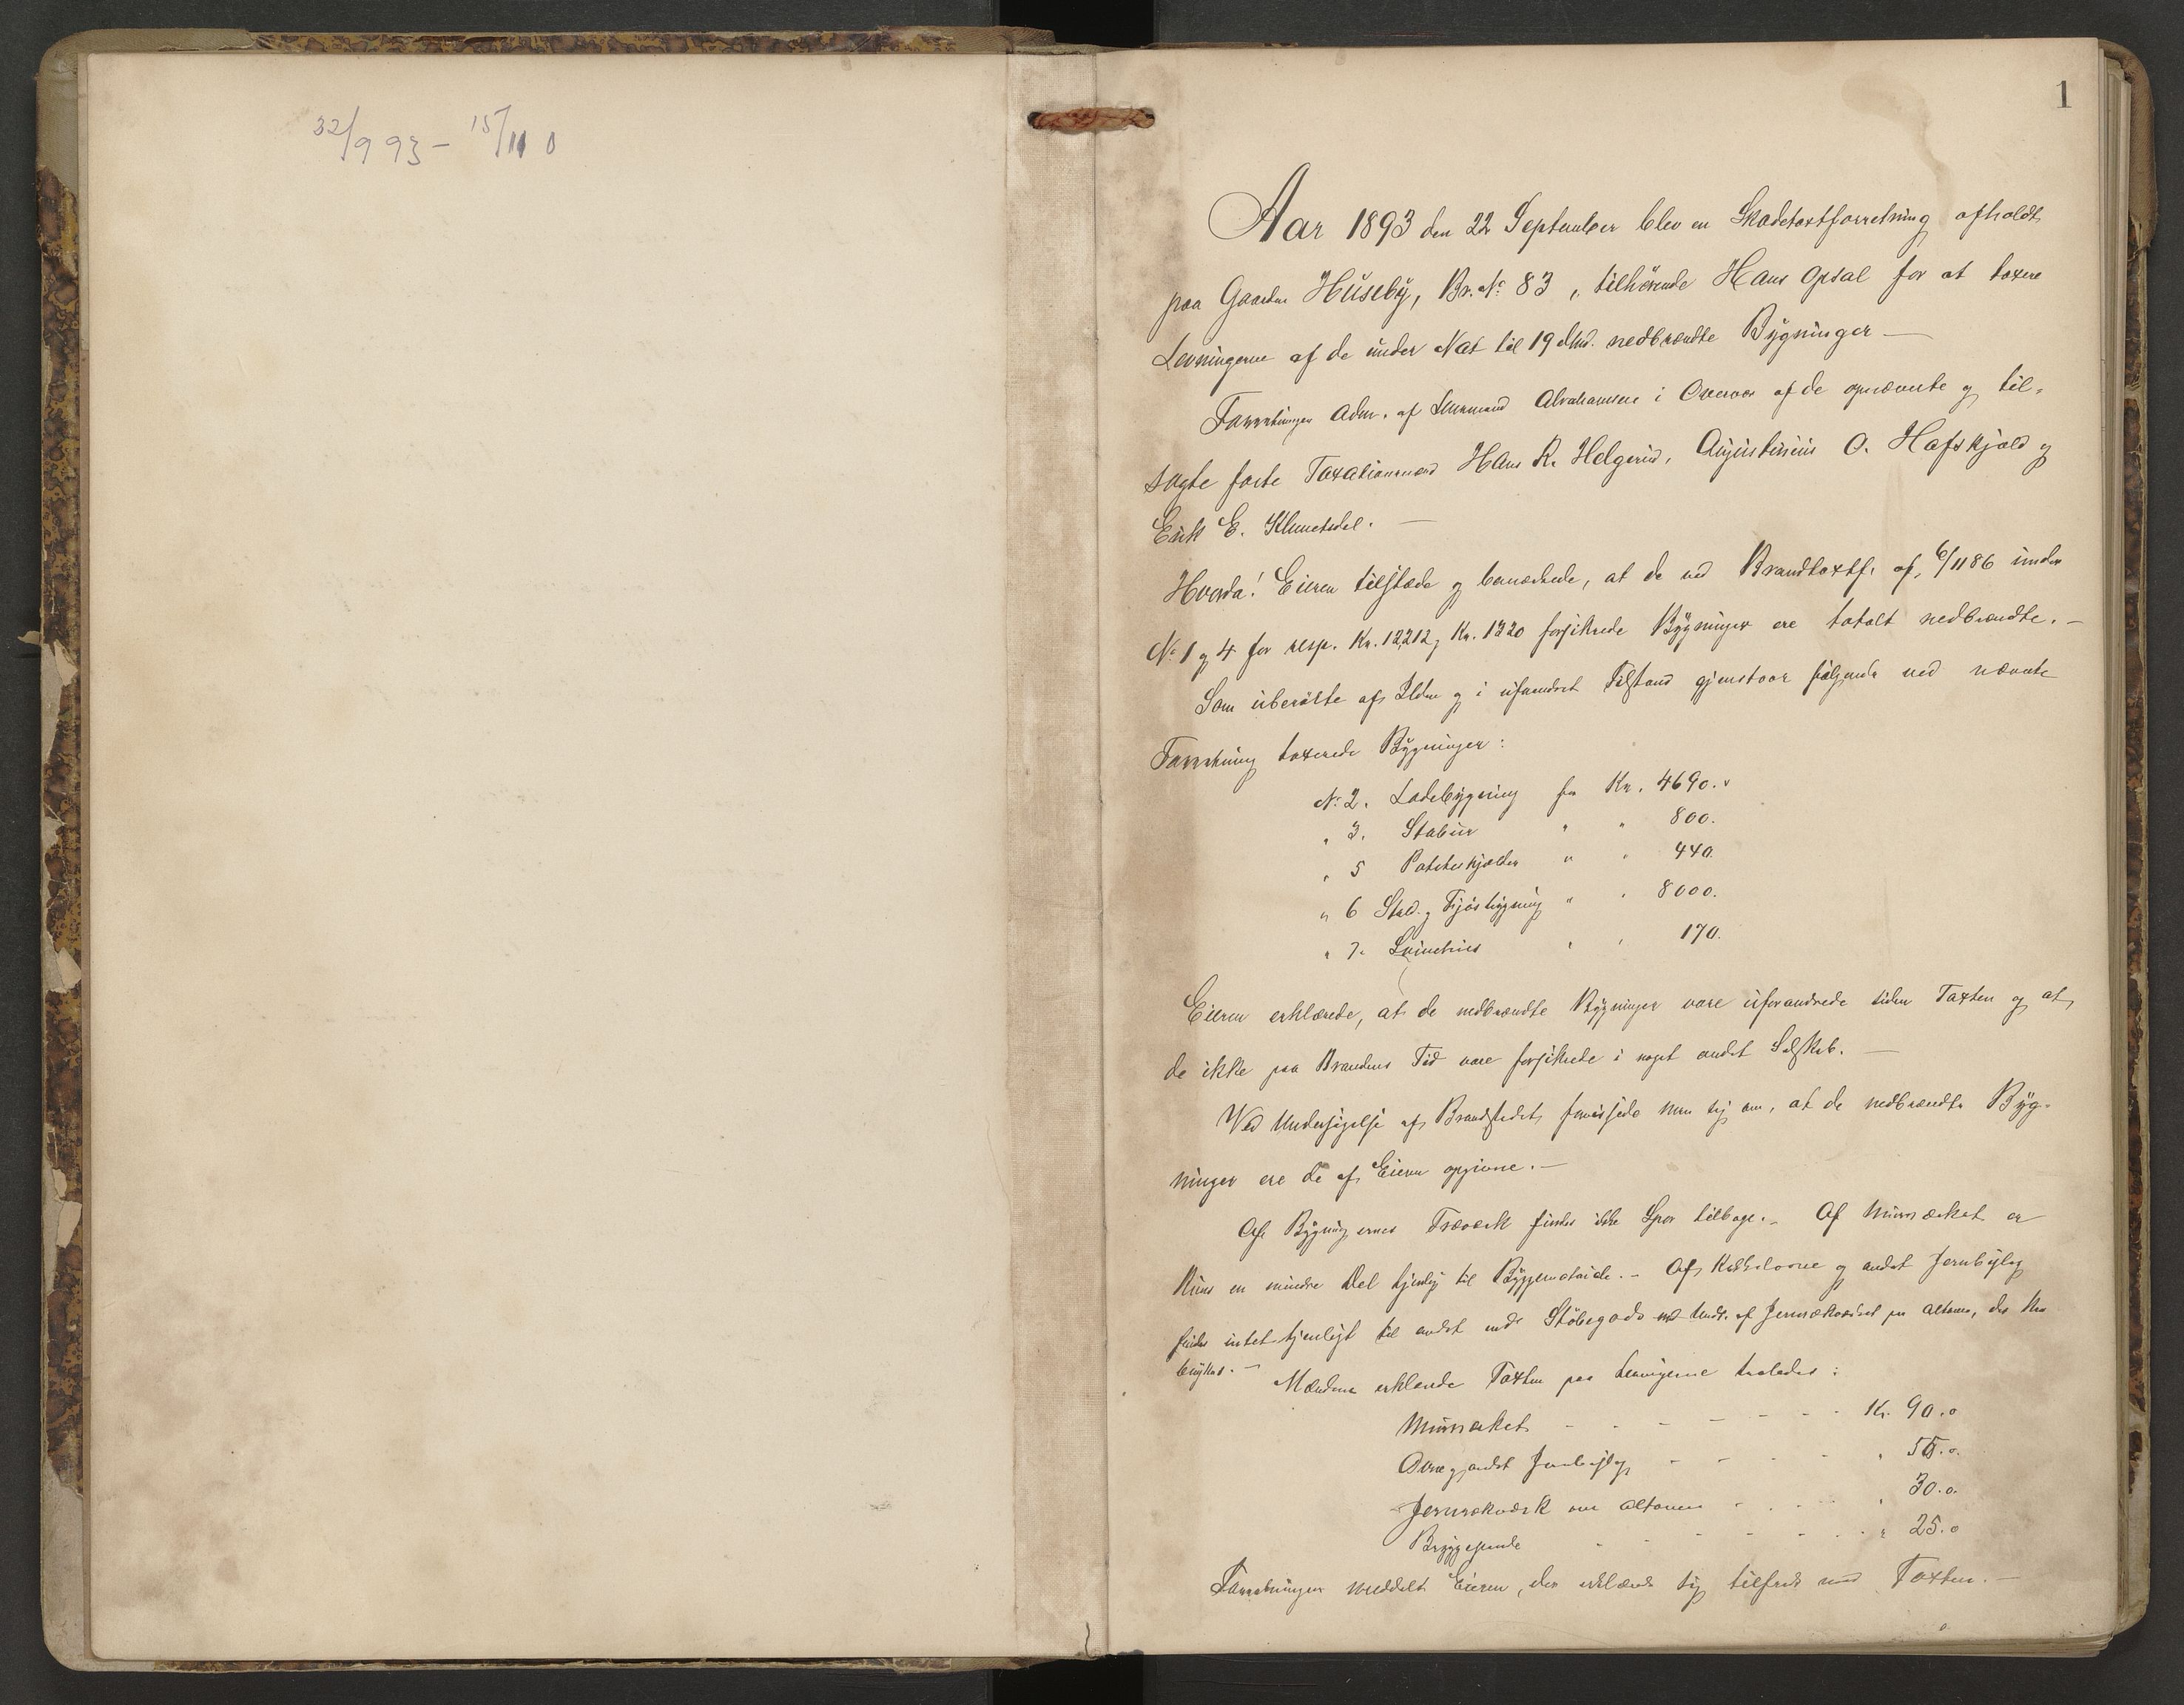 22/9 93 - 15/11 0
1
Aar 1893 den 22 September blev en Skadetaxtforretning afholdt
paa Gaarden Huseby, Br. No 83, tilhørende Hans Opsal for at taxere
Levningerne af de under Nat til 19 dns. nedbrændte Bygninger —
Forretningen Adm. af Lensmand Abrahamsen i Overvær af de opnævnte og til-
sagte faste Taxationsmænd Hans R. Helgerud, Augustinius O. Hafskjold og
Erik E. Klunetsdel. —
Hvorda! Eieren tilstede og bemærkede, at de ved Brandtaxtf. af 6/11 86 under
No 1 og 4 for resp. Kr. 12,212 og Kr. 1320 forsikrede Bygninger ere totalt nedbrændte. —
Som uberørte af Ilden og i uforandret Tilstand gjenstaar følgende ved nævnte
Forretning taxerede Bygninger:
No 2. Ladebygning for Kr. 4690.
" 3. Stabur " " 800.
" 5 Poteteskjælder " " 440.
" 6 Stald- og Fjøsbygning " " 8000.
" 7. Svinehus " " 170.
Eieren erklærede, at de nedbrændte Bygninger vare uforandrede siden Taxten og at
de ikke paa Brandens Tid vare forsikrede i noget andet Selskab. —
Ved Undersøgelse af Brandstedet forvissede man sig om, at de nedbrændte Byg-
ninger ere de af Eieren opgivne. —
Af Bygningernes Træværk findes ikke Spor tilbage. — Af Murværket er
kuns en mindre Del tjenlig til Byggemateriale. — Af Kakkelovne og andet Jernbeslag
findes intet tjenligt til andet end Støbegods med Undt. af Jernrækværket paa Altanen, der kan
benyttes. — Mændene erklærede Taxten paa Levningerne saaledes:
Murværket - - - - - - - Kr. 90.0
Ovne og andet Jernbeslag - - - - " 55.0
Jernrækværk om Altanen - - - - " 30.0
Bryggepande - - - - - - " 25.0
Forretningen meddelt Eieren, der erklærede sig tilfreds med Taxten. —